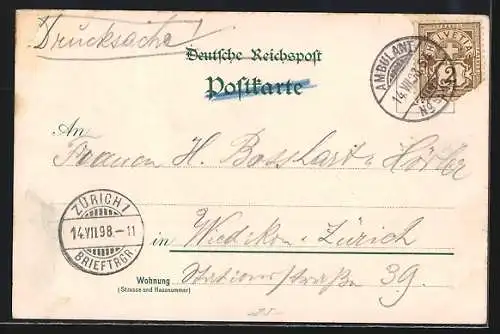 Drucksache
Deutsche Reichspost
Postkarte
AMBULANT
14.VII.98
HELVETIA
2
An
Frauen H. Bosshart-Hösler
ZÜRICH 1
14.VII.98.-11
BRIEFTRGR
in Wiedikon-Zürich
Wohnung
(Strasse und Hausnummer)
Stationsstraße 39.